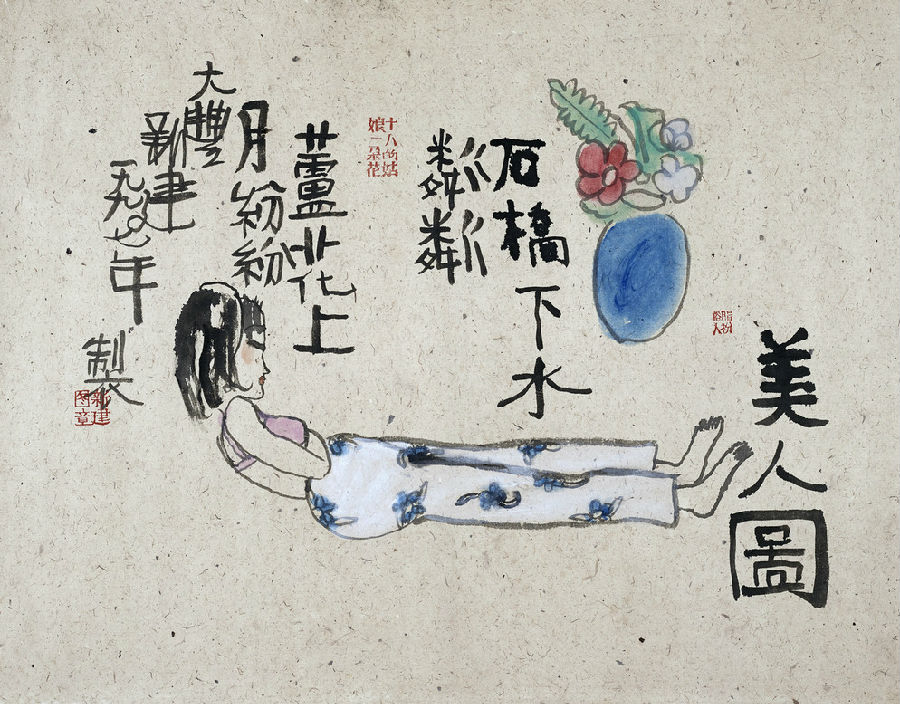 美人圖
石橋下水
粼粼
十八的姑
娘一朵花
蘆花上
月紛紛
大豐
新建
一九九七年
製
新建
图章